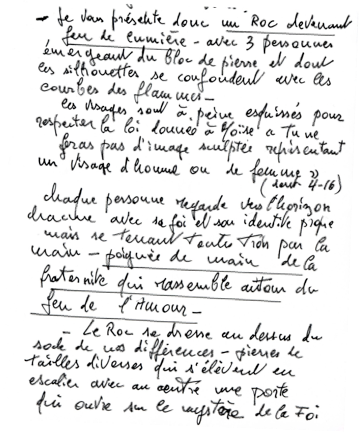 - Je vous présente donc un Roc devenant
feu de lumière - avec 3 personnes
émergeant du bloc de pierre et dont
les silhouettes se confondent avec les
courbes des flammes -
les visages sont à peine esquissés pour
respecter la loi donnée à Moïse « Tu ne
feras pas d'image sculptée représentant
un visage d'homme ou de femme »
(4-16)
chaque personne regarde vers l'horizon
chacune avec sa foi et son identité propre
mais se tenant toute par la
main - poignée de main de la
fraternité qui rassemble autour du
feu de l'Amour -
- Le Roc se dresse au dessus du
socle de nos différences - pierres de
tailles diverses qui s'élèvent en
escalier avec au centre une porte
qui ouvre sur le mystère de la Foi